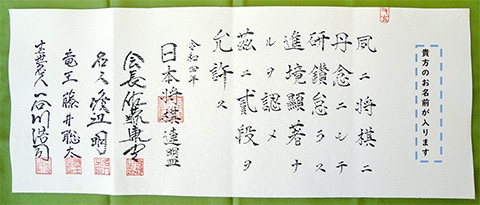 貴方のお名前が入ります
夙ニ将棋ニ
丹念ニシテ
研鑽怠ラス
進境顕著ナ
ルヲ認メ
茲ニ貳段ヲ
允許ス
令和四年
日本将棋連盟
会長佐藤康光
名人渡辺明
竜王藤井聡太
十七世名人谷川浩司